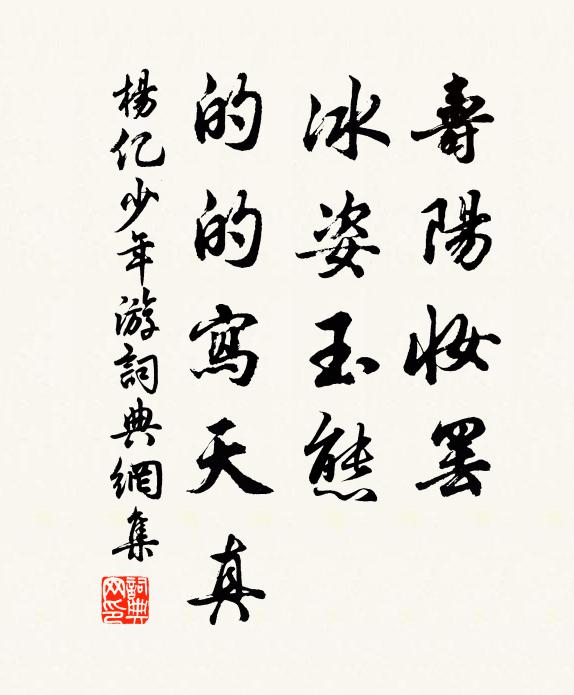 壽陽妆罷
冰姿玉態
的的寫天真
楊億少年游詞典網集
詞典网印